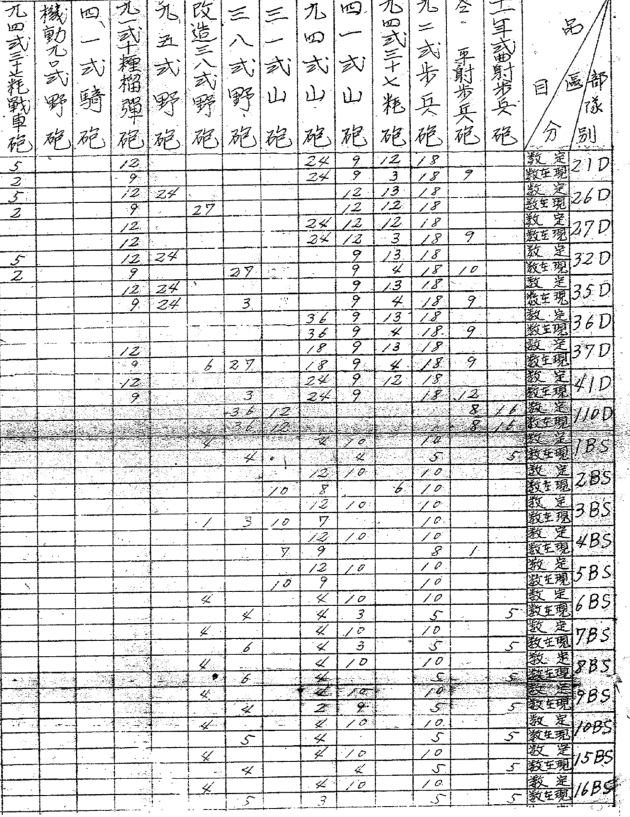 品目
區分
部隊別
十一年式曲射步兵砲
仝 平射步兵砲
九二式步兵砲
九四式三十七粍砲
四一式山砲
九四式山砲
三一式山砲
三八式野砲
改造三八式野砲
九五式野砲
九一式十糎榴彈砲
四一式騎砲
機動九〇式野砲
九四式三十七粍戰車砲
21D 定數 18 12 9 24 12 5
現在數 9 18 3 9 24 9 2
26D 定數 18 13 12 24 12 5
現在數 18 12 12 27 9 2
27D 定數 18 12 12 24 12
現在數 9 18 3 12 24 12
32D 定數 18 13 9 24 12 5
現在數 10 18 4 9 27 9 2
35D 定數 18 13 9 24 12
現在數 9 18 4 9 3 24 9
36D 定數 18 13 9 36
現在數 9 18 4 9 36
37D 定數 18 13 9 18 12
現在數 9 18 4 9 18 27 6 9
41D 定數 18 12 9 24 12
現在數 12 18 9 24 3 9
110D 定數 16 8 12 36
現在數 16 8 12 36
1BS 定數 10 10 4 4
現在數 5 5 4 4
2BS 定數 10 10 12
現在數 10 6 8 10
3BS 定數 10 10 12
現在數 10 7 10 3 1
4BS 定數 10 10 12
現在數 1 8 9 7
5BS 定數 10 10 12
現在數 10 9 10
6BS 定數 10 10 4 4
現在數 5 5 3 4 4
7BS 定數 10 10 4 4
現在數 5 5 3 4 6
8BS 定數 10 10 4 4
現在數 5 5 4 6
9BS 定數 10 10 4 4
現在數 5 5 9 2 4
10BS 定數 10 10 4 4
現在數 5 5 4 5
15BS 定數 10 10 4 4
現在數 5 5 4 4
16BS 定數 10 10 4 4
現在數 5 5 3 5